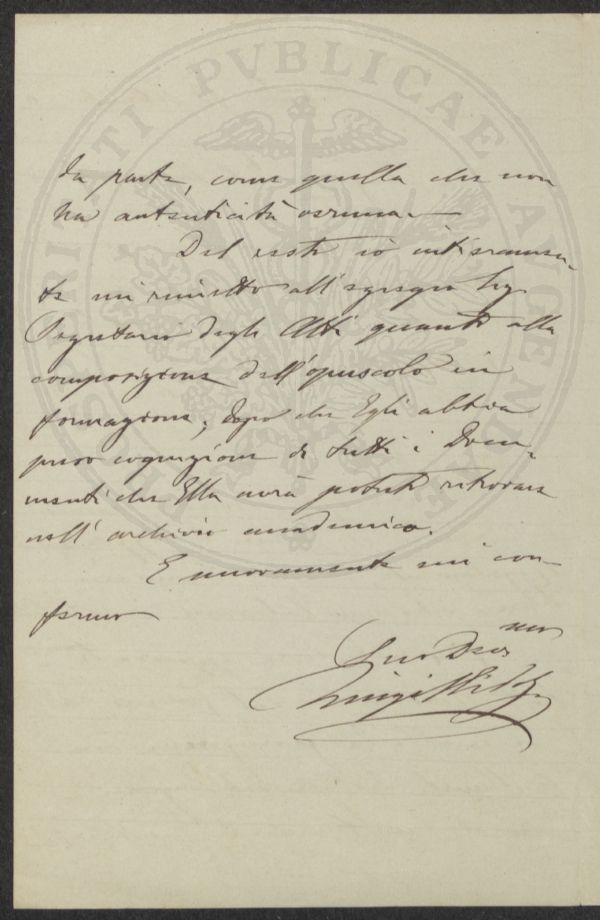 da parte, come quella che non
ha autenticità veruna.—
Del resto io intieramen-
te mi rimetto all'egregio Sig.
Segretario degli Atti quanto alla
composizione dell'opuscolo in
formazione, dopo che Egli abbia
preso cognizione di tutti i Docu-
menti che Ella avrà potuto ritrovare
nell'archivio accademico.
E nuovamente mi con-
fermo
Suo Dev.mo
Luigi